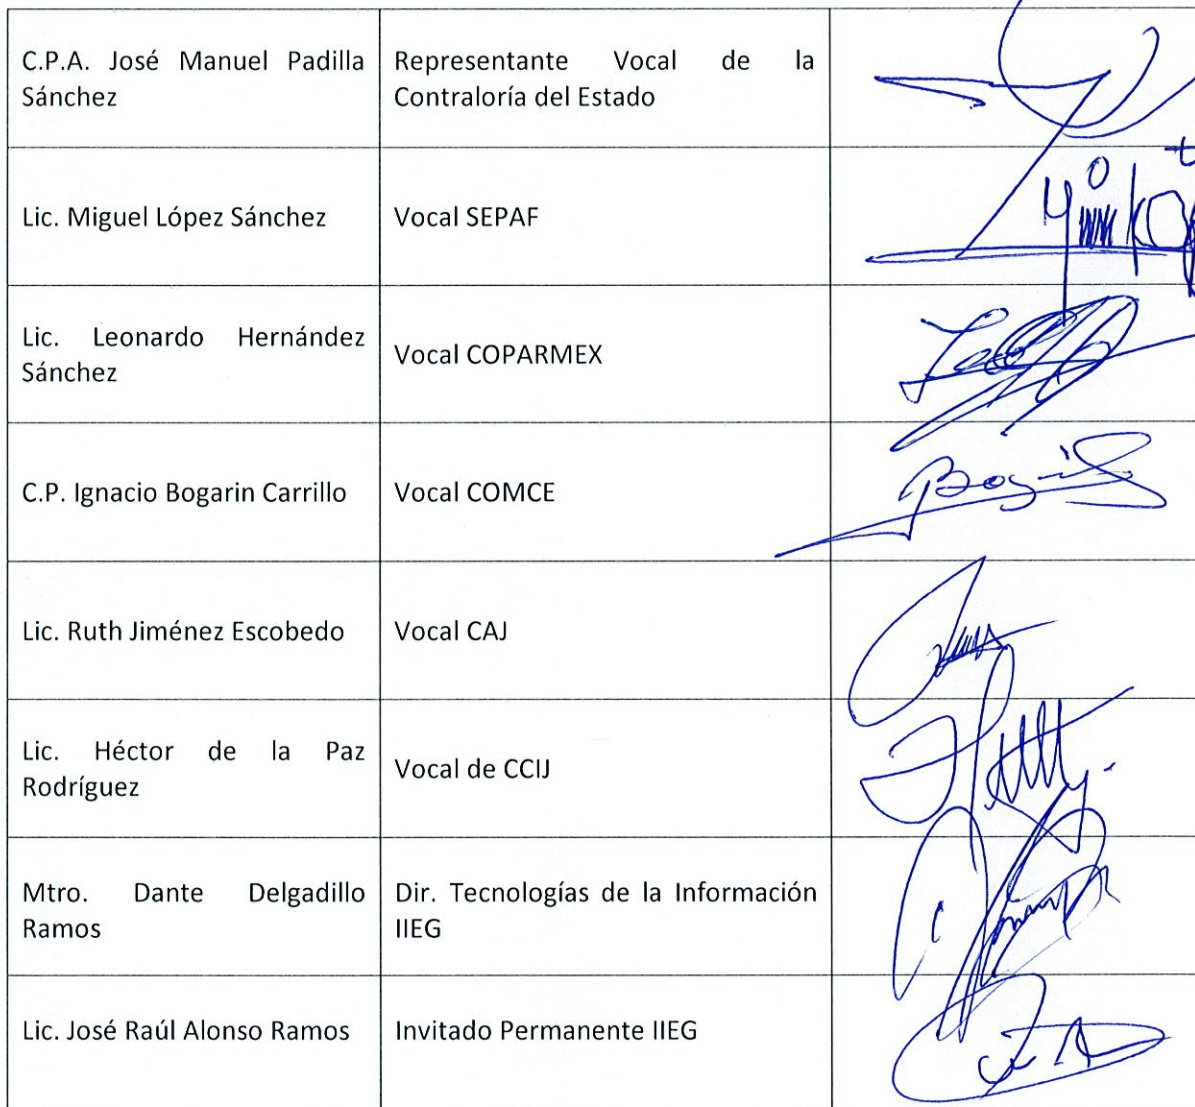 C.P.A. José Manuel Padilla
Sánchez
Representante Vocal de la
Contraloría del Estado
Lic. Miguel López Sánchez
Vocal SEPAF
Lic. Leonardo Hernández
Sánchez
Vocal COPARMEX
C.P. Ignacio Bogarin Carrillo
Vocal COMCE
Lic. Ruth Jiménez Escobedo
Vocal CAJ
Lic. Héctor de la Paz
Rodríguez
Vocal de CCIJ
Mtro. Dante Delgadillo
Ramos
Dir. Tecnologías de la Información
IIEG
Lic. José Raúl Alonso Ramos
Invitado Permanente IIEG